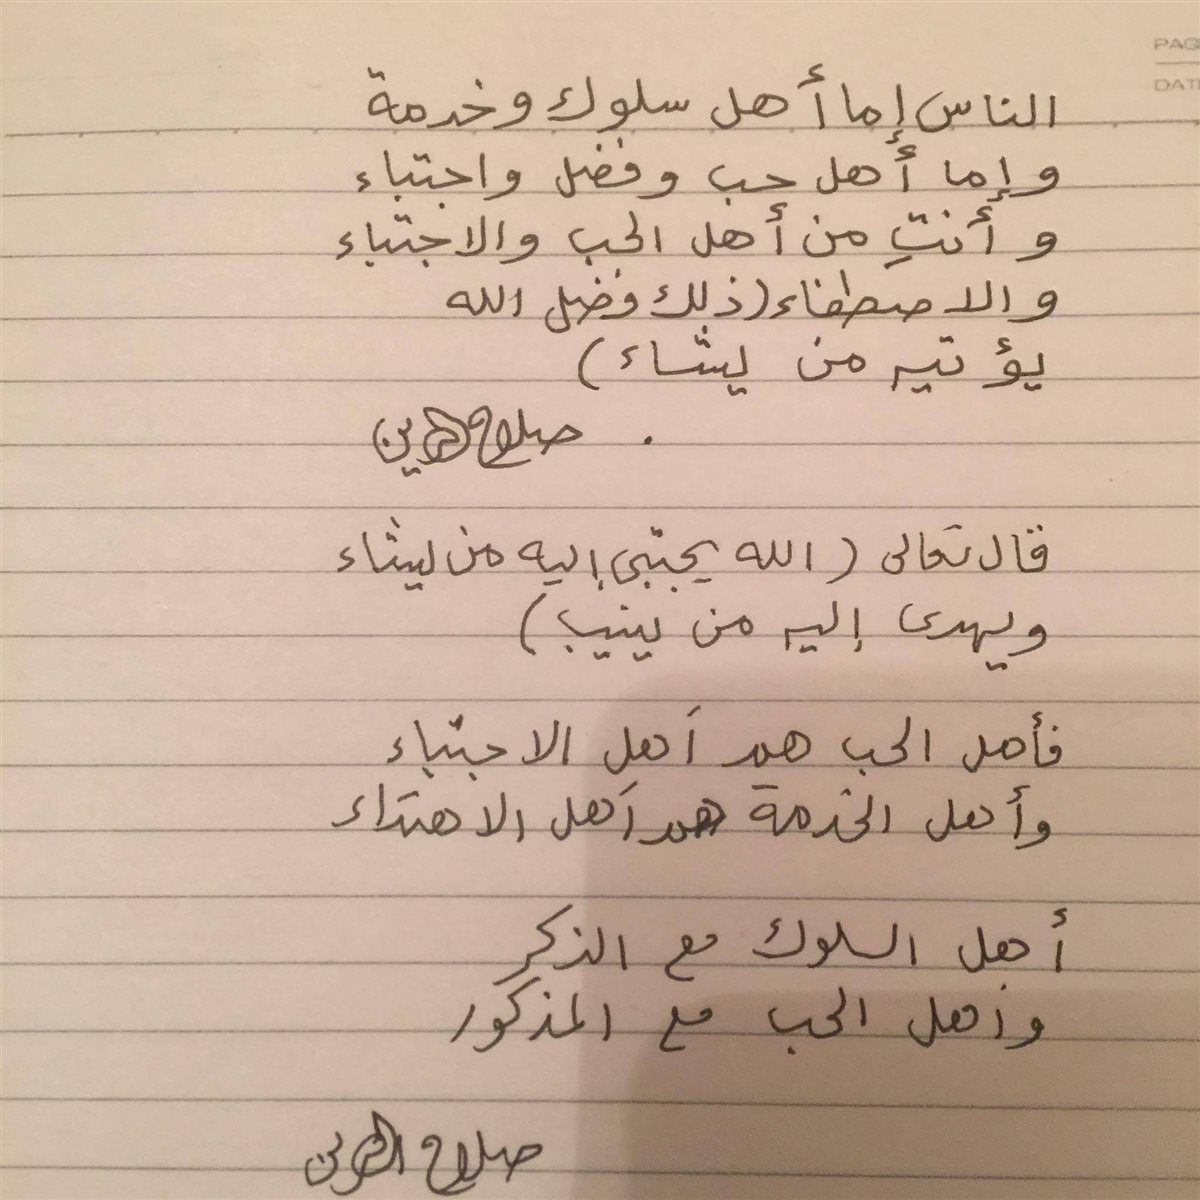 PAG
DATE
الناس إما أهل سلوك وخدمة
وإما أهل حب وفضل واجتباء
وأنتِ من أهل الحب والاجتباء
والاصطفاء (ذلك فضل الله
يؤتيه من يشاء)
صلاح الدين
قال تعالى (الله يجتبى إليه من يشاء
ويهدى إليه من ينيب)
فأهل الحب هم أهل الاجتباء
وأهل الخدمة هم أهل الاهتداء
أهل السلوك مع الذكر
وأهل الحب مع المذكور
صلاح الدين